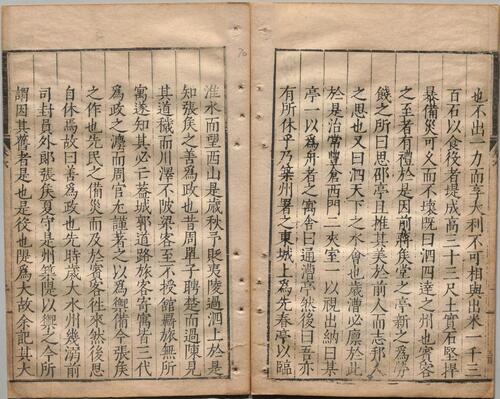 也不出一力而享大利不可相與出米一千三
百石以食役者堤成高三十三尺土實石堅捍
暴備災可久而不壞既曰泗四達之州也賓客
之至者有禮於是因前蔣矦堂之亭新之為勞
餞之所曰思邵亭且推其美於前人而志邦人
之思也又曰泗天下之水會也歲漕必廩於此
於是治常豐倉西門二夾室一以視出納曰某
亭一以為舟者之寓舍曰通漕亭然後曰吾亦
有所休乎乃築州署之東城上為先春亭以臨
淮水而望西山是歲秋予貶夷陵過泗上於是
知張矦之善為政也昔周單子聘楚而過陳見
其道穢而川澤不陂梁客至不授館羈旅無所
寓遂知其必亡蓋城郭道路旅客寄寓皆三代
為政之灋而周官尤謹著之以為禦備今張矦
之作也先民之備災而及於賓客往來然後思
自休焉故曰善為政也先時歲大水州幾溺前
司封員外郎張矦夏守是州築隄以禦之今所
謂因其舊者是也是役也隄為大故余記其大
70